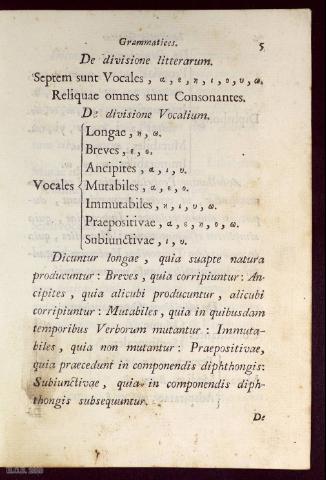 Grammatices. 5
De divisione litterarum.
Septem sunt Vocales, α, ε, η, ι, ο, υ, ω.
Reliquae omnes sunt Consonantes.
De divisione Vocalium.
Longae, η, ω.
Breves, ε, ο.
Ancipites, α, ι, υ.
Vocales Mutabiles, α, ε, ο.
Immutabiles, η, ι, υ, ω.
Praepositivae, α, ε, η, ο, ω.
Subiunctivae, ι, υ.
Dicuntur longae, quia suapte natura
producuntur: Breves, quia corripiuntur: An-
cipites, quia alicubi producuntur, alicubi
corripiuntur: Mutabiles, quia in quibusdam
temporibus Verborum mutantur: Immuta-
biles, quia non mutantur: Praepositivae,
quia praecedunt in componendis diphthongis:
Subiunctivae, quia in componendis diph-
thongis subsequuntur.
De